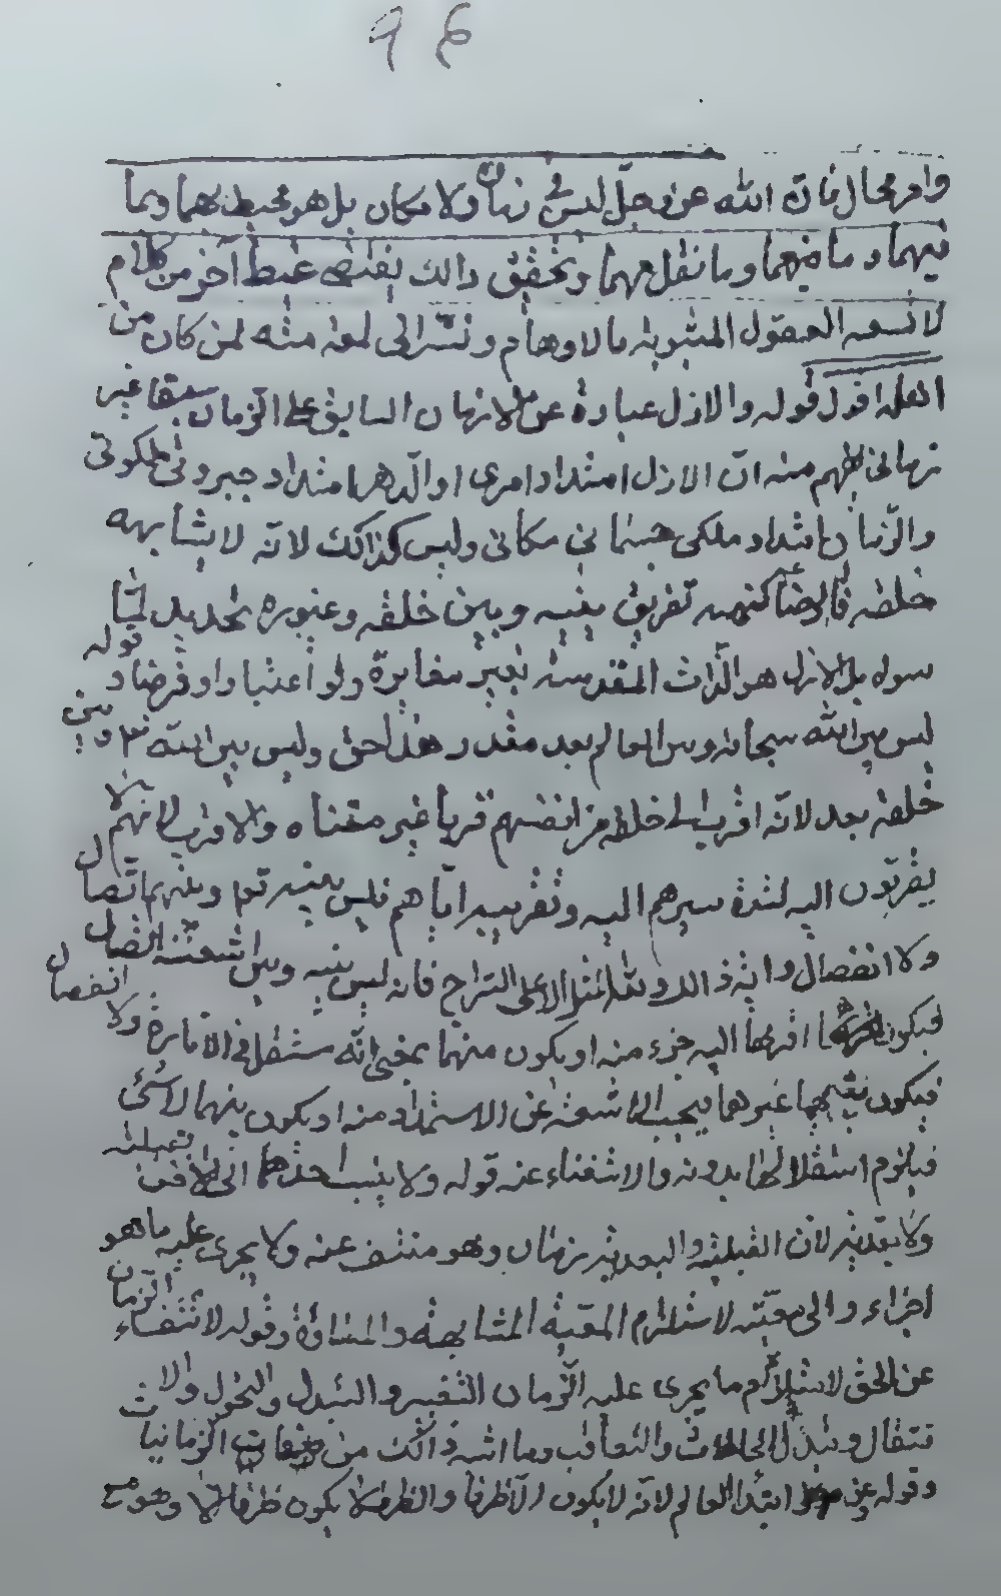 ٩٤
وامر محال فان الله عز وجل ليس في زمان ولا مكان بل هو محيط بهما وبما
فيهما وما منهما وما نقل عنهما وتحقيق ذالك يقتضي آخر من كلام
لا تسعه العقول المشوبة بالاوهام ونشير الى لمعه منه لمن كان من
اهله اقول قوله والازل عبادة عن اللازمان السابق على الزمان سبقا غير
زماني يفهم منه ان الازل امتداد امري او الدهر امتداد جبروتي ملكوتي
والزمان امتداد ملكي جسماني مكاني وليس كذالك لانه لا يشابهه
خلقه كنهه تفريق بينه وبين خلقه وغيوره تحديد لما
سواه بل الازل هو الذات المقدسة بغير مغايرة ولو اعتبارا وفرضا وقوله
ليس بين الله سبحانه وبين العالم بعد مقدر هذا حق وليس بين الله وبين
خلقه بعد لانه اقرب الى خلقه من انفسهم قربا غير متناه ولا قرب لانهم لا
يقربون اليه لشدة سيرهم اليه وتقريبه اياهم فليس بينه وبينهم اتصال
ولا انفصال واية ذالك ولله المثل الاعلى السراج فانه ليس بينه وبين اشعته اتصال
فيكون اقربها اليه جزء منه او يكون منهما بمعنى انه مستقل في الانارة ولا انفصال
فيكون بينهما غيرهما فيحجب الاشعة عن الاستمداد منه او يكون بينهما لا شئ
فيلزم استقلالها بدونه والاستغناء عنه قوله ولا ينسب احدهما الى الاخر بقبلية
ولا بعدية لان القبلية والبعدية زمان وهو منتف عنه ولا يجري عليه ما هو
اجراه والى معيته لاستلزام المعية المشابهة والمساواة وقوله لانتفاء الزمان
عن الحق لاستلزام ما يجري عليه الزمان التغيير والتبدل والتحول والا
نتقال وتبدل الحالات والتعاقب وما اشبه ذالك من صفات الزمانيا
وقوله وعن ابتداء العالم لانه لا يكون الا ظرفا والظرف لا يكون ظرفا الا وهو مع